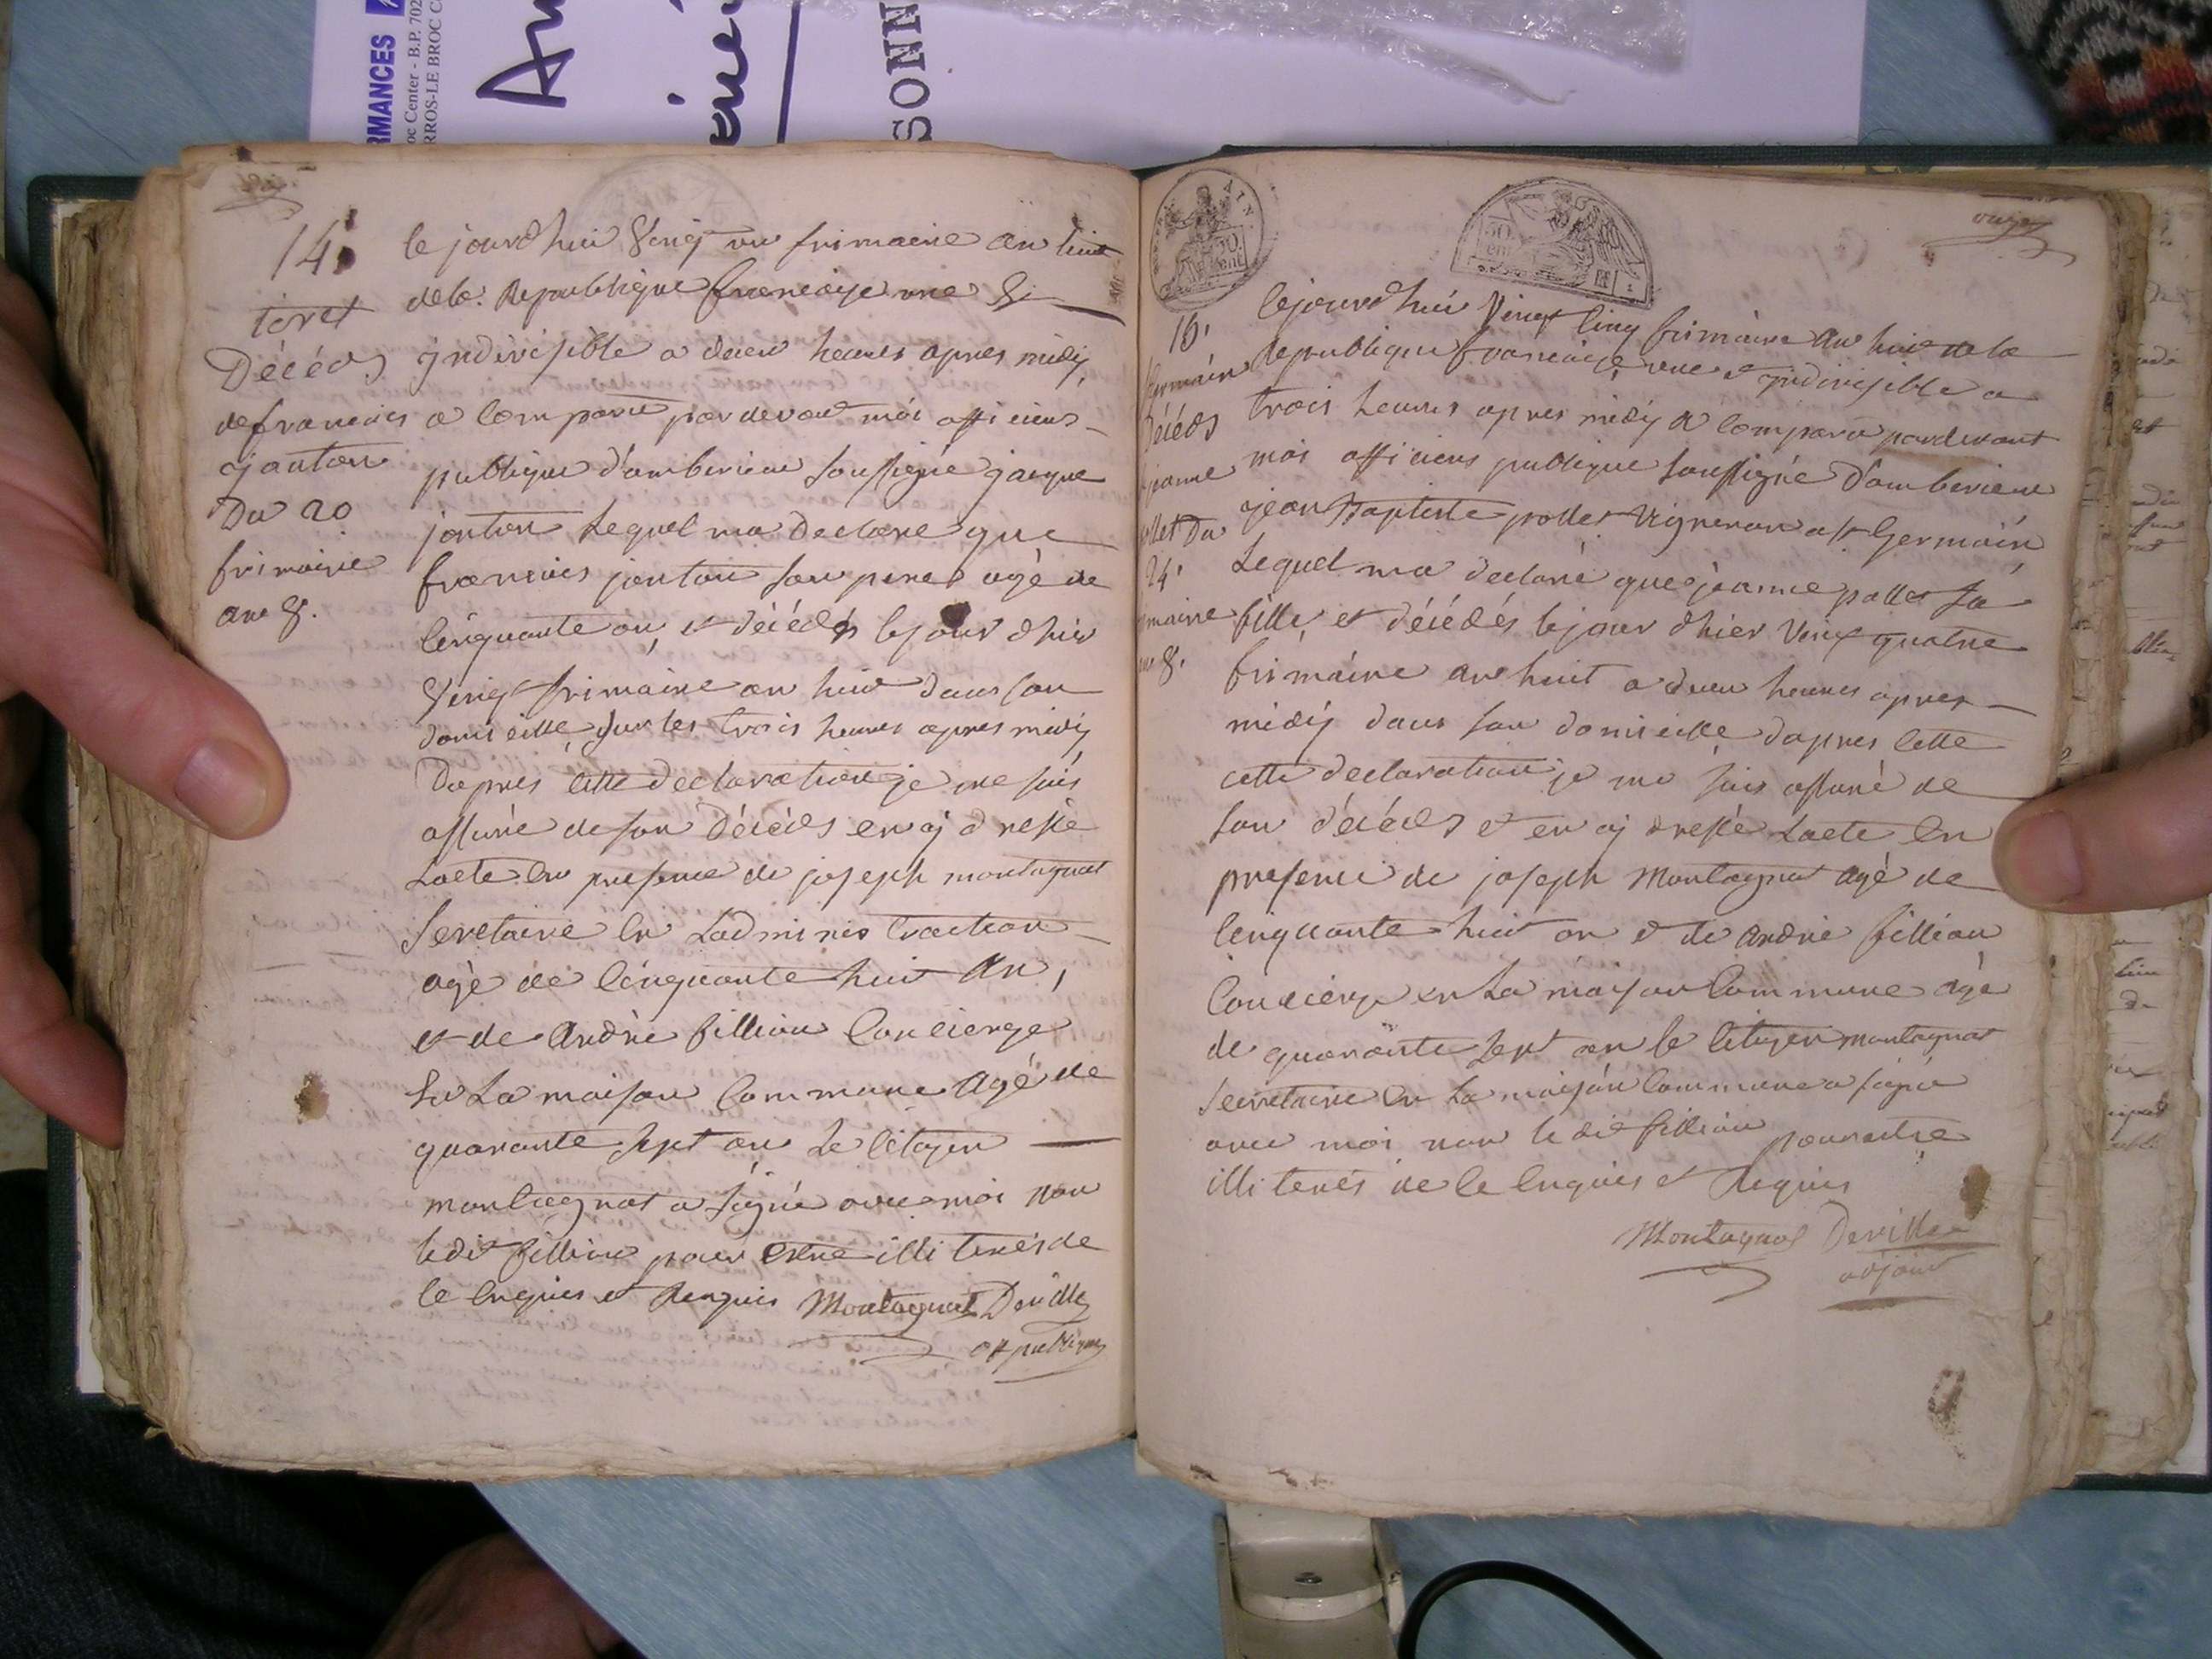 RMANCES
oc Center - B.P. 702
RROS-LE BROC C
An
SONN
14.
toret
Décéds
de francois
janton
Du 20
frimaire
an 8.
le jourdhui Vingt un frimaire an huit
de la Republique francaise une &
yndivisible a deux heures apres midy
a Comparu pardevant moi officiers
publique d'amberieux soussigné jacque
janton Lequel ma Declare que
francois janton son pere agé de
Cinquante an, et décédés le jour dhier
Vingt frimaire an huit dans son
domicille sur les trois heures apres midy
Dapres Cette declaration je me suis
assuré de son Décéds en aj dressé
Lacte En presence de joseph montagnat
Secretaire En Ladministraction
agé de Cinquante huit An,
et de André fillion Concierge
En La maison Commune Agé de
quarante sept an Le Citoyen
montagnat a signé avec moi non
ledit fillion pour Estre illiterés de
Ce Enquis et Requis Montagnat Deville
off publique
onze
AIN
50
cent
50
cent
15.
Germain
Décéds
jeanne
pollet Du
24.
frimaire
an 8.
Cejourdhui Vingt Cinq frimaire an huit de la
Republique francaise une et yndivisible a
trois heures apres midy a Comparu pardevant
moi officiers publique soussigné D'amberieux
jean Baptiste pollet Vigneron a st Germain
Lequel ma declaré que jeanne pollet sa
fille, et décédés le jour dhier Vingt quatre
frimaire an huit a deux heures apres
midy dans son domicille dapres Cette
cette declaration je me suis assuré de
son décéds et en aj dressé Lacte En
presence de joseph Montagnat agé de
Cinquante huit an et de André fillion
Concierge en La maison Commune agé
de quarante sept an le Citoyen montagnat
Secretaire En La maison Commune a signé
avec moi non le dit fillion pour estre
illiterés de Ce Enquis et Requis
Montagnat Deville
adjoint